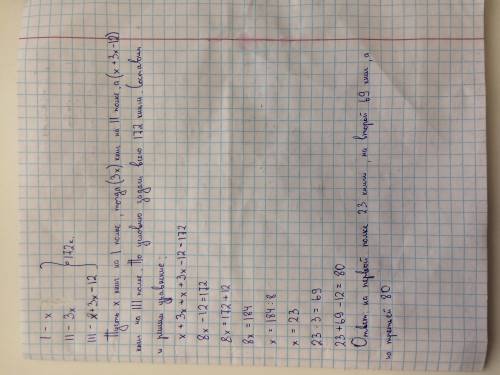 I - x
II - 3x
III - x+3x-12
} 172 к.
Пусть x книг на I полке, тогда (3x) книг на II полке, а (x+3x-12)
книг на III полке. По условию задачи всего 172 книги. Составим
и решим уравнение:
x+3x+x+3x-12=172
8x-12=172
8x=172+12
8x=184
x=184:8
x=23
23·3=69
23+69-12=80
Ответ: на первой полке 23 книги, на второй 69 книг, а
на третьей 80